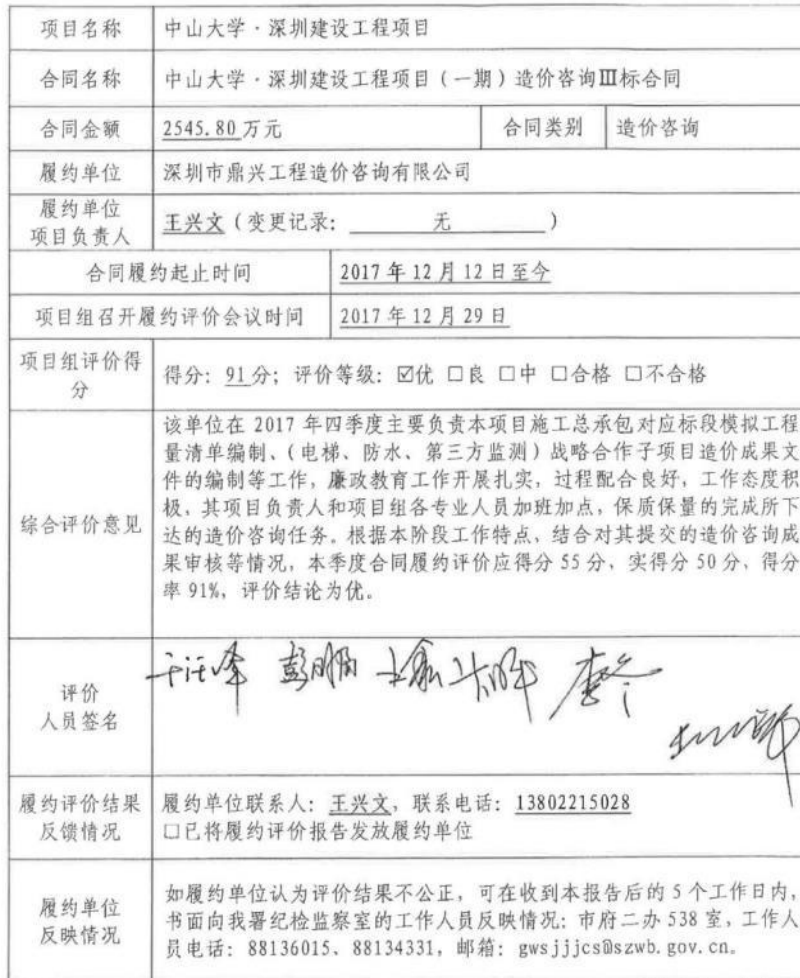 项目名称 中山大学·深圳建设工程项目
合同名称 中山大学·深圳建设工程项目（一期）造价咨询Ⅲ标合同
合同金额 2545.80万元 合同类别 造价咨询
履约单位 深圳市鼎兴工程造价咨询有限公司
履约单位
项目负责人 王兴文（变更记录： 无 ）
合同履约起止时间 2017年12月12日至今
项目组召开履约评价会议时间 2017年12月29日
项目组评价得
分 得分：91分；评价等级：☑优 □良 □中 □合格 □不合格
综合评价意见
该单位在 2017 年四季度主要负责本项目施工总承包对应标段模拟工程
量清单编制、（电梯、防水、第三方监测）战略合作子项目造价成果文
件的编制等工作，廉政教育工作开展扎实，过程配合良好，工作态度积
极，其项目负责人和项目组各专业人员加班加点，保质保量的完成所下
达的造价咨询任务。根据本阶段工作特点、结合对其提交的造价咨询成
果审核等情况，本季度合同履约评价应得分 55 分，实得分 50 分，得分
率 91%，评价结论为优。
评价
人员签名
履约评价结果
反馈情况
履约单位联系人：王兴文，联系电话：13802215028
□已将履约评价报告发放履约单位
履约单位
反映情况
如履约单位认为评价结果不公正，可在收到本报告后的 5 个工作日内，
书面向我署纪检监察室的工作人员反映情况：市府二办 538 室，工作人
员电话：88136015、88134331，邮箱：gwsjjjcs@szwb.gov.cn。